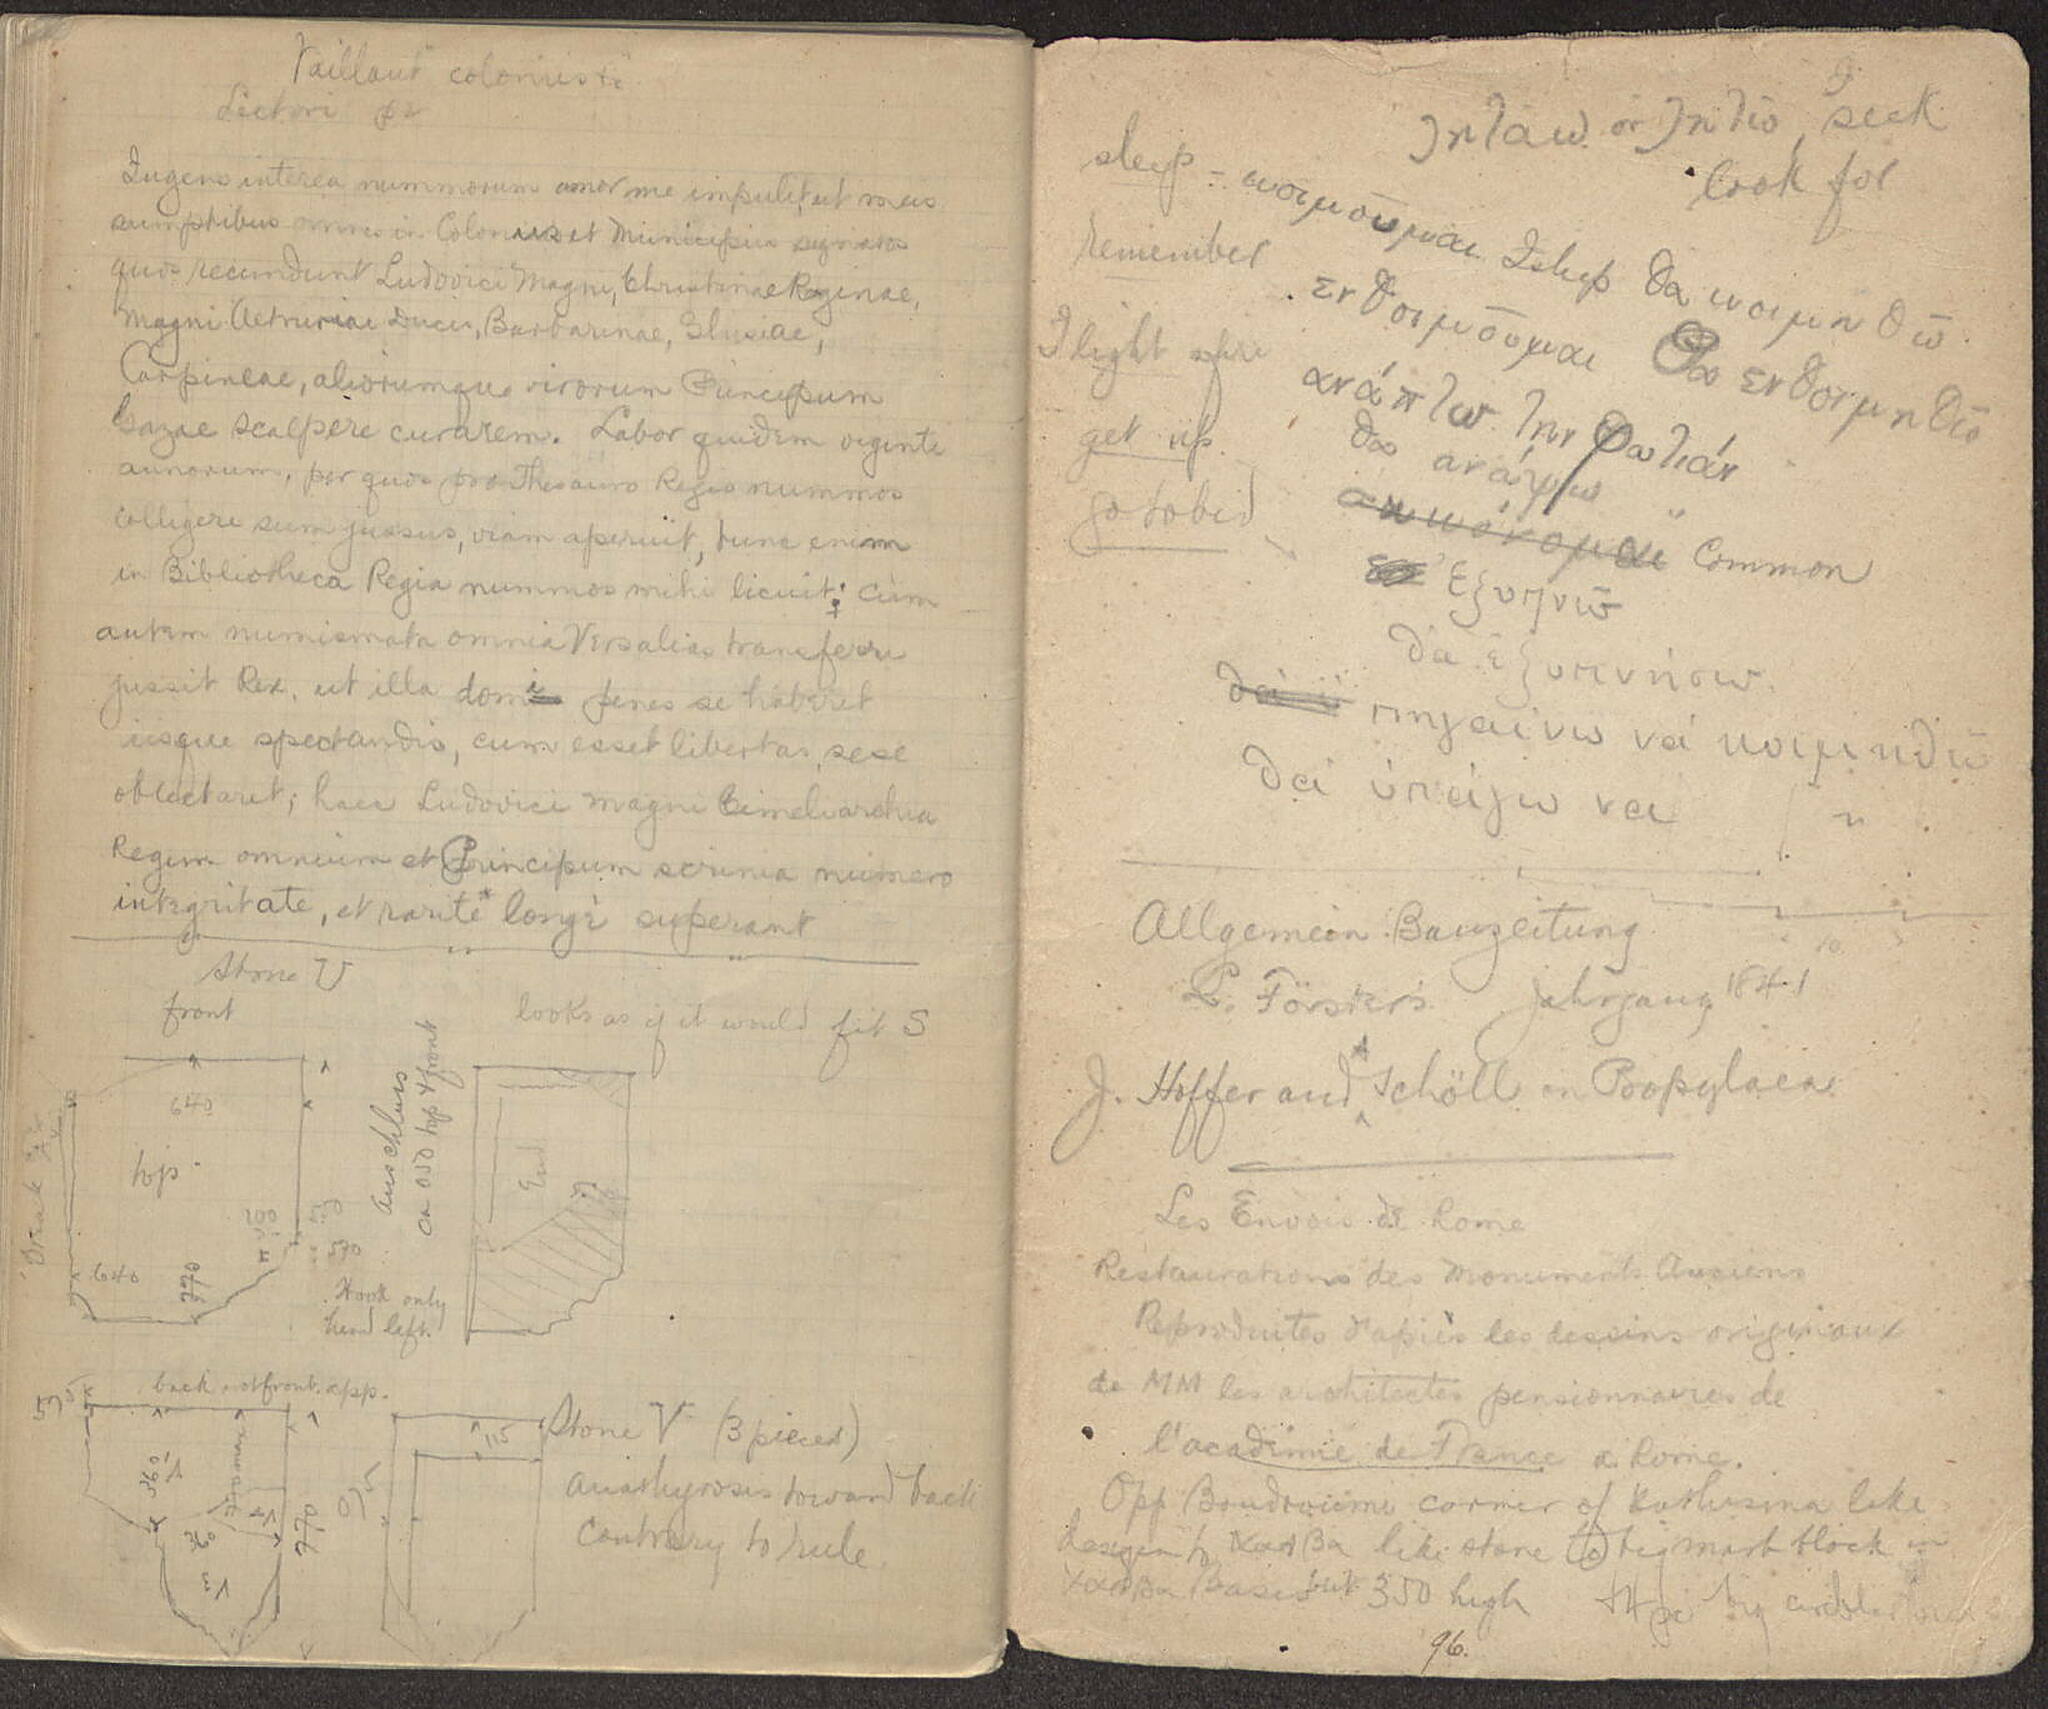 Vaillant coloniis
Lectori
Ingens interea nummorum amor me impulit, ut meis
sumptibus omnes in Coloniis et Municipiis signatos
quos recundunt Ludovici Magni, Christinae Reginae,
Magni Aetruriae Ducis, Barbarinae,
Carpineae, aliorumque virorum Principum
Gazae scalpere curarem. Labor quidem viginti
annorum, per quos pro Thesauro Regio nummos
colligere sum jussus, viam aperuit, tunc enim
in Bibliotheca Regia nummos mihi licuit; cum
autem numismata omnia Versalias transferri
jussit Rex, ut illa domi penes se haberet
iisque spectandis, cum esset libertas, sese
oblectaret; haec Ludovici Magni Cimeliarchia
Regum omnium et Principum scrinia numero
integritate, et rarite* longè superant
Stone U
front
looks as if it would fit S
640
top
Anschluss
ca 050 top & front
End
100
570
640
770
Hook only
hend left.
back not front. app.
Stone V (3 pieces)
115
anathyrosis toward back
contrary to rule.
360
360
770
I
ζητάω or ζητῶ, seek
look for
sleep = κοιμοῦμαι I sleep θα κοιμηθῶ
remember
ενθοιμοῦμαι Θα ενθοιμηθῶ
I light fire
ανάπτω την φωτιάν
get up.
θα ανάψω
go to bed
σηκόνομαι common
ἐξυπνῶ
θα ἐξυπνήσω.
πηγαίνω νά κοιμηθῶ
θά ὑπάγω να "
Allgemein Bauzeitung
L. Försters Jahrgang 1841
J. Hoffer and A Schöll on Propylaea
Les Envois de Rome
Restaurations des Monuments Anciens
Reproduites d'apiès les dessins originaux
de MM les architectes pensionnaires de
l'académie de France a Rome.
Opp Boudroumi corner of Kathisma like
design to like stone big marb block in
Basis but 350 high big circular
96.